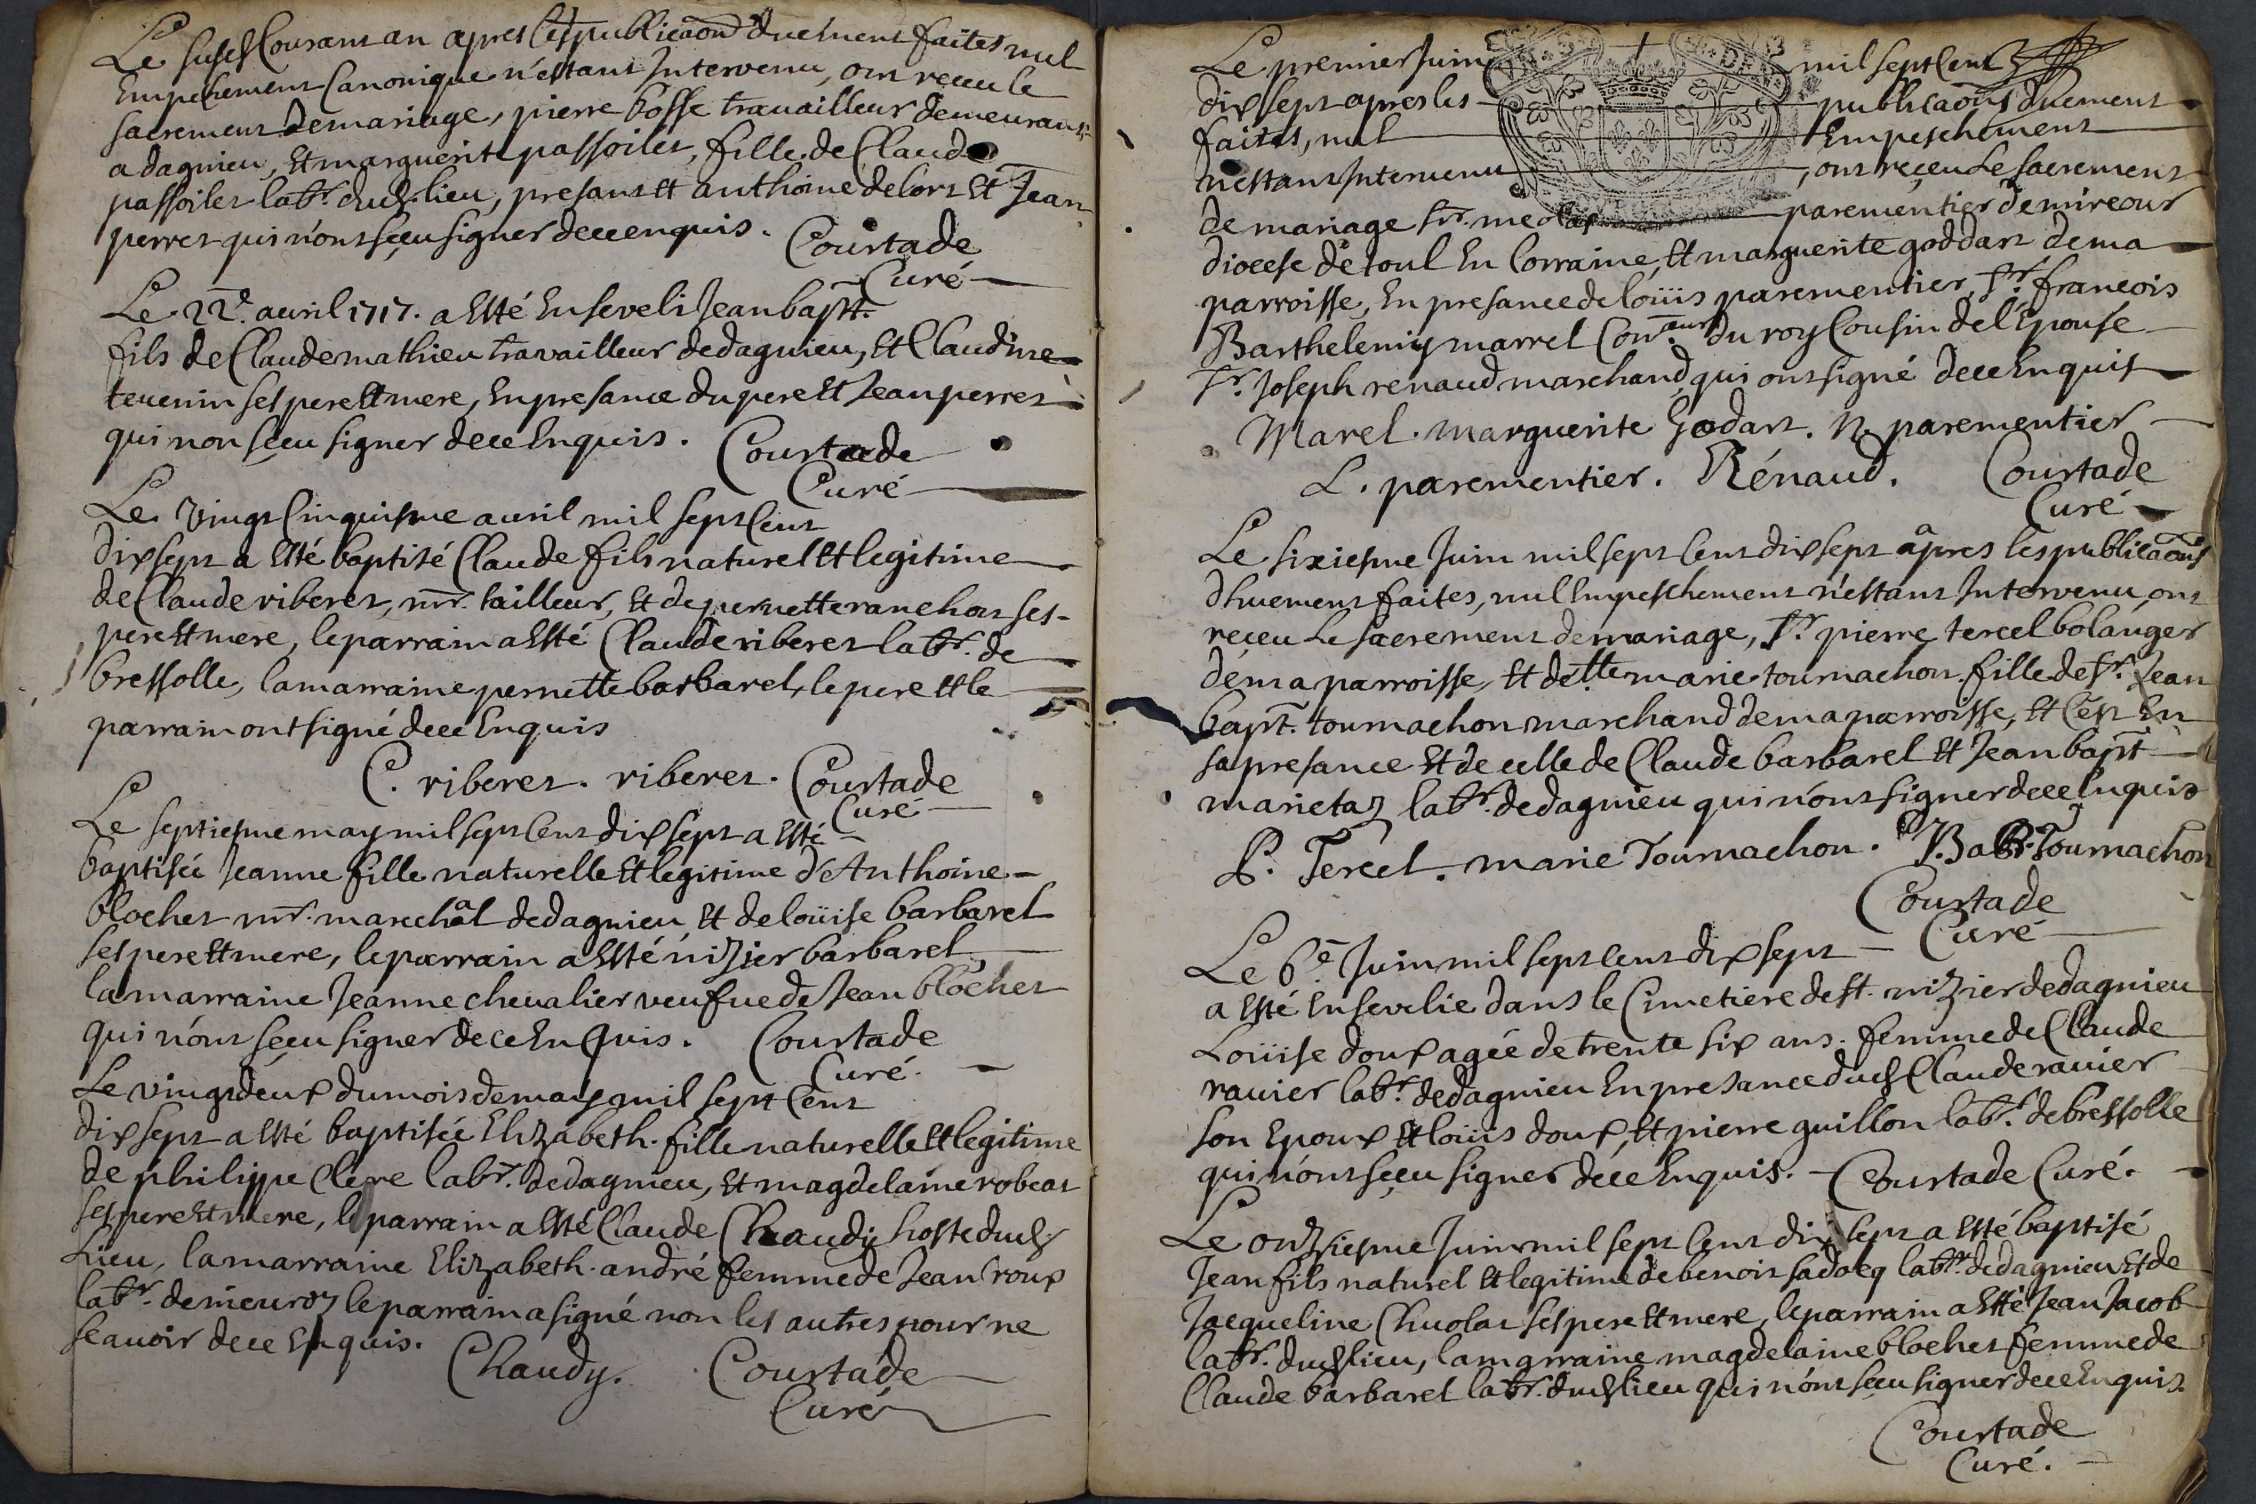 Le susd Courant an apres les publicaons duement faites nul
Empechement Canonique n'estant Intervenu, ont receu le
sacrement de mariage, pierre bosse travailleur demeurant
a dagnieu, Et marguerite passoiler, fille de Claude
passoiler labr. dud. lieu, presant et anthoine delors Et Jean
perret qui n'ont sçeu signer de ce enquis. Courtade
Curé
Le 22e. avril 1717. a Esté Enseveli Jean bapt.
fils de Claude mathieu travailleur de dagnieu, Et Claudine
tevenin ses pere Et mere, En presance du pere Et Jean perret
qui n'on sçeu signer de ce Enquis. Courtade
Curé
Le Vingt Cinquiesme avril mil sept Cent
dix sept a Esté baptisé Claude fils naturel Et legitime
de Claude riberet, mr. tailleur, Et de pernette ranchon ses
pere Et mere, le parrain a Esté Claude riberet labr. de
bressolle, la marraine pernette barbaret, le pere Et le
parrain ont signé de ce Enquis
C. riberet. riberet. Courtade
Curé
Le septiesme may mil sept Cent dix sept a Esté
baptisée Jeanne fille naturelle Et legitime d'Anthoine
blochet mr. marechal de dagnieu Et de loüise barbaret
ses pere Et mere, le parrain a Esté nizier barbaret,
la marraine Jeanne chevalier veufve de Jean blochet
qui n'ont sçeu signer de ce EnQuis. Courtade
Curé.
Le vingt deux du mois de may mil sept Cent
dix sept a Esté baptisée Elizabeth fille naturelle Et legitime
de philippe Clere labr. de dagnieu, Et magdelaine robeat
ses pere Et mere, le parrain a Esté Claude Chaudy hoste dud.
Lieu, la marraine Elizabeth andré femme de Jean roux
labr. de meuroz le parrain a signé non les autres pour ne
scavoir de ce Enquis.
Chaudy. Courtade
Curé
Le premier Juin mil sept Cent
dix sept apres les publicaons duement
faites, nul Empeschement
n'estant Intervenu, ont reçeu Le sacrement
de mariage Sr. nicolas parementier de mircour
diocese de toul En Lorraine, Et marguerite goddart de ma
parroisse, En presance de loüis parementier, Sr. francois
Barthelemy marrel Con.eur du roy Cousin de l'Epouse
Sr. Joseph renaud marchand qui ont signé de ce Enquis
Marel. marguerite Godart. N. parementier
L. parementier. Rénaud. Courtade
Curé
Le sixiesme Juin mil sept Cent dix sept apres les publicaons
dhuement faites, nul Empeschement n'estant Intervenu, ont
reçeu Le sacrement de mariage, Sr. pierre tercel bolanger
de ma parroisse, Et delle marie tournachon fille de Sr. Jean
bapt. tournachon marchand de ma parroisse, Et C'est En
sa presance Et de celle de Claude barbaret Et Jean bapt
marietaz labr. de dagnieu qui n'ont signer de ce Enquis
P. Tercel. marie Tournachon. J. Bapt. Tournachon
Courtade
Curé
Le 6e Juin mil sept cent dix sept
a Esté Ensevelie dans le Cimetiere de st. nizier de dagnieu
Loüise doux agée de trente six ans. femme de Claude
ravier labr. de dagnieu En presance dud Claude ravier
son Epoux Et loüis doux, Et pierre guillon labr. de bressolle
qui n'ont sçeu signer de ce Enquis. Courtade Curé.
Le onziesme Juin mil sept Cent dix sept a Esté baptisé
Jean fils naturel Et legitime de benoit sadocq labr. de dagnieu Et de
Jacqueline Chuolat ses pere Et mere, le parrain a Esté Jean Jacob
labr. dud lieu, la marraine magdelaine blochet femme de
Claude barbaret labr. dud lieu qui n'ont sçeu signer de ce Enquis.
Courtade
Curé.